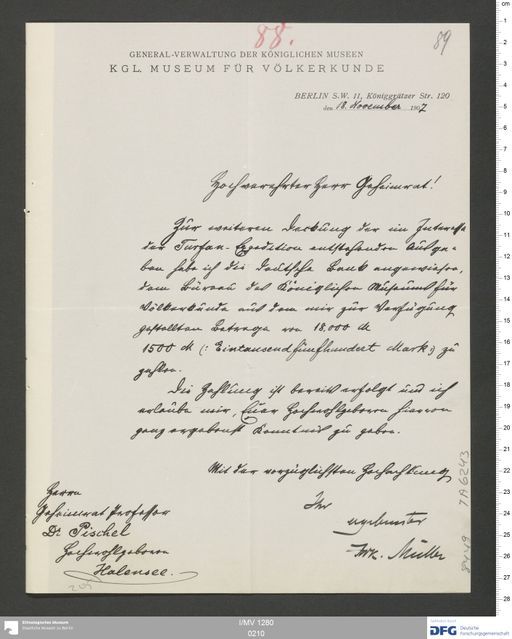 88.
89
GENERAL-VERWALTUNG DER KÖNIGLICHEN MUSEEN
KGL. MUSEUM FÜR VÖLKERKUNDE
BERLIN S.W. 11, Königgrätzer Str. 120
den 18. November 1907
Hochverehrter Herr Geheimrat!
Zur weiteren Deckung der im Interesse
der Turfan-Expedition entstehenden Ausga-
ben habe ich die Deutsche Bank angewiesen,
dem Bureau des Königlichen Museums für
Völkerkunde aus dem mir zur Verfügung
gestellten Betrage von 18,000 M
1500 M (: Eintausendfünfhundert Mark:) zu
zahlen.
Die Zahlung ist bereits erfolgt und ich
erlaube mir, Euer Hochwohlgeboren hiervon
ganz ergebenst Kenntnis zu geben.
Mit der vorzüglichsten Hochachtung
Ihr
ergebenster
F.W.K. Müller
Herrn
Geheimrat Professor
Dr Pischel
Hochwohlgeboren
Halensee.
TA 6243
Ethnologisches Museum
Staatliche Museen zu Berlin
I/MV 1280
0210
gefördert durch
DFG Deutsche
Forschungsgemeinschaft
cm
1
2
3
4
5
6
7
8
9
10
11
12
13
14
15
16
17
18
19
20
21
22
23
24
25
26
27
28